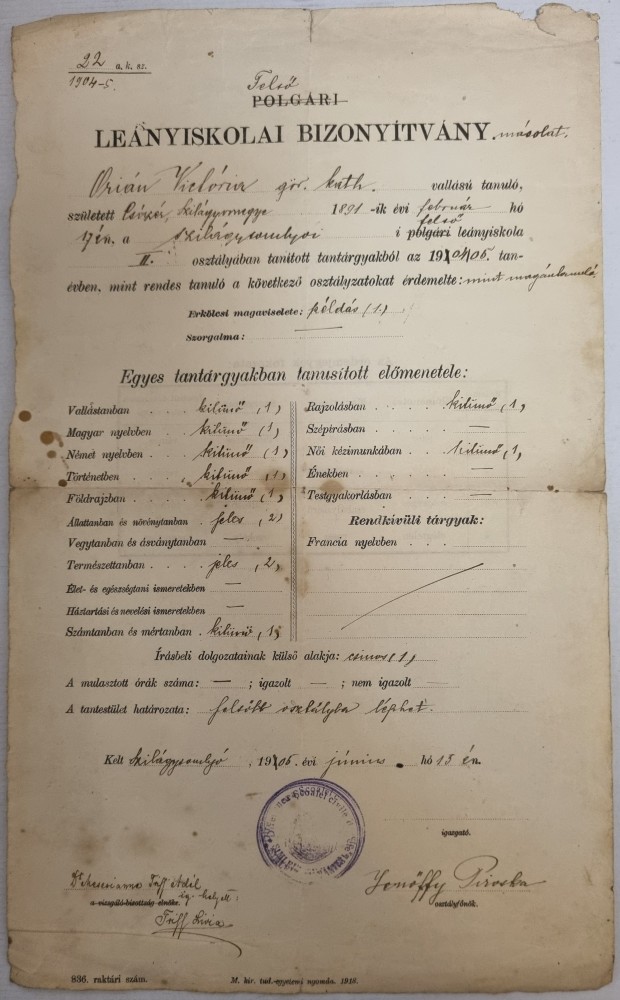 22 a. k. sz.
1904-5.
Felső
POLGÁRI
LEÁNYISKOLAI BIZONYÍTVÁNY. másolat.
Orián Victória gör. kath. vallású tanuló,
született Szilágymegye 1891-ik évi február hó
felső
17 én, a szilágysomlyoi i polgári leányiskola
II. osztályában tanított tantárgyakból az 1904/05. tan-
évben, mint rendes tanuló a következő osztályzatokat érdemelte: mint magántanuló,
Erkölcsi magaviselete: példás (1.)
Szorgalma: —
Egyes tantárgyakban tanusított előmenetele:
Vallástanban . . . kitünő (1)
Magyar nyelvben . . kitünő (1)
Német nyelvben . . . kitünő (1)
Történetben . . . . kitünő (1)
Földrajzban . . . . kitünő (1)
Állattanban és növénytanban . jeles, (2)
Vegytanban és ásványtanban —
Természettanban . . . jeles (2)
Élet- és egészségtani ismeretekben —
Háztartási és nevelési ismeretekben —
Számtanban és mértanban . kitünő (1)
Rajzolásban . . . . kitünő (1)
Szépírásban . . . . —
Női kézimunkában . . kitünő (1)
Énekben . . . . . —
Testgyakorlásban . . . —
Rendkívüli tárgyak:
Francia nyelvben . . . —
Írásbeli dolgozatainak külső alakja: csinos (1)
A mulasztott órák száma: — ; igazolt — ; nem igazolt —
A tantestület határozata: felsőbb osztályba léphet.
Kelt Szilágysomlyó, 1905. évi június hó 15 én.
igazgató.
Triff Adél
ig. hely.
a vizsgáló-bizottság elnöke.
Triff Livia
Jenőffy Piroska
osztályfőnök.
836. raktári szám.
M. kir. tud.-egyetemi nyomda. 1918.